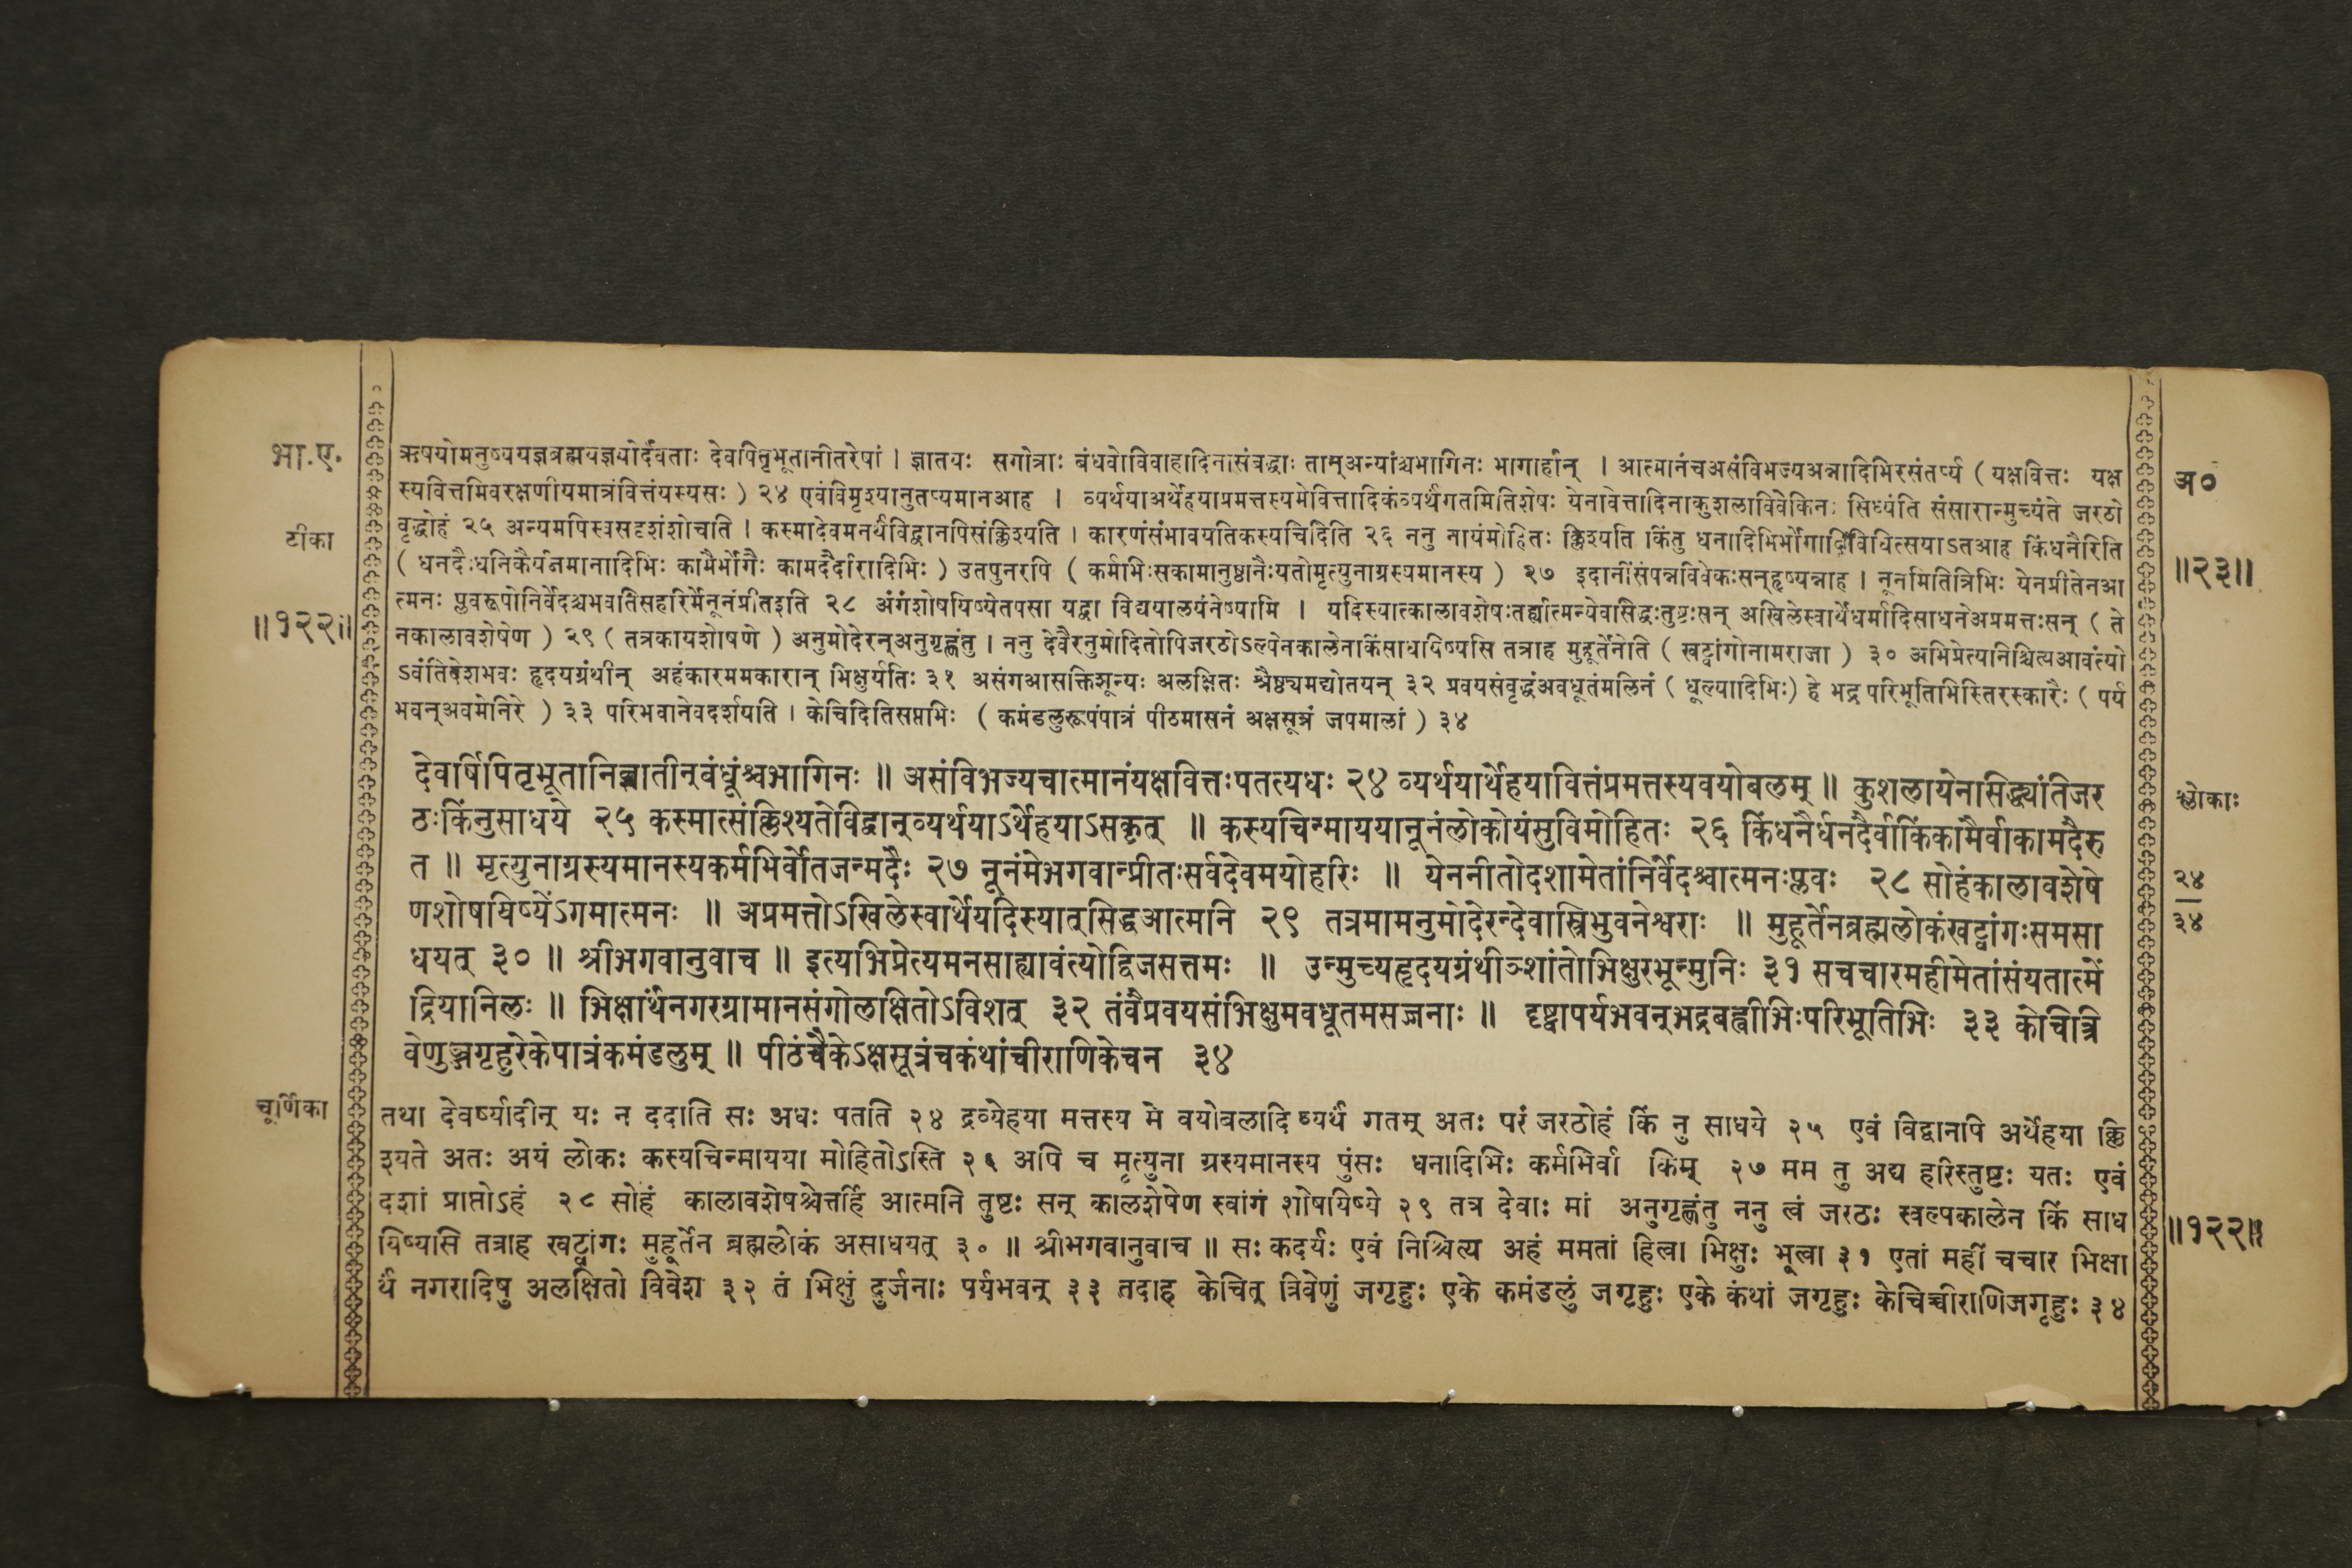 भा.ए.
टीका
॥१२२॥
ऋषयोमनुष्ययज्ञब्रह्मयज्ञयोर्देवताः देवपितृभूतानीतरेषां । ज्ञातयः सगोत्राः बंधवोविवाहादिनासंबद्धाः तान्अन्यांश्चभागिनः भागार्हान् । आत्मानंचअसंविभज्यअन्नादिभिरसंतर्प्य ( यक्षवित्तः यक्ष
स्यवित्तमिवरक्षणीयमात्रंवित्तंयस्यसः ) २४ एवंविमृश्यानुतप्यमानआह । व्यर्थयाअर्थेहयाप्रमत्तस्यमेवित्तादिकंव्यर्थंगतमितिशेषः येनवित्तादिनाकुशलाविवेकिनः सिध्यंति संसारान्मुच्यंते जरठो
वृद्धोहं २५ अन्यमपिस्वसदृशंशोचति । कस्मादेवमनर्थविद्वानपिसंक्लिश्यति । कारणंसंभावयतिकस्यचिदिति २६ ननु नायंमोहितः क्लिश्यति किंतु धनादिभिर्भोगादिविधित्सयाऽतआह किंधनैरिति
( धनदैःधनिकैर्यजमानादिभिः कामैर्भोगैः कामदैर्दारादिभिः ) उतपुनरपि ( कर्मभिःसकामानुष्ठानैःयतोमृत्युनाग्रस्यमानस्य ) २७ इदानींसंपन्नविवेकःसन्हृष्यन्नाह । नूनमितित्रिभिः येनप्रीतेनआ
त्मनः प्लवरूपोनिर्वेदश्चभवतिसहरिर्मेनूनंप्रीतइति २८ अंगंशोषयिष्येतपसा यद्वा विद्ययालयंनेष्यामि । यदिस्यात्कालावशेषःतर्ह्यात्मन्येवसिद्धःतुष्टःसन् अखिलेस्वार्थेधर्मादिसाधनेअप्रमत्तःसन् ( ते
नकालावशेषेण ) २९ ( तत्रकायशोषणे ) अनुमोदेरन्अनुगृह्णंतु । ननु देवैरनुमोदितोपिजरठोऽल्पेनकालेनकिंसाधयिष्यसि तत्राह मुहूर्तेनेति ( खट्वांगोनामराजा ) ३० अभिप्रेत्यनिश्चित्यआवंत्यो
ऽवंतिदेशभवः हृदयग्रंथीन् अहंकारममकारान् भिक्षुर्यतिः ३१ असंगआसक्तिशून्यः अलक्षितः श्रैष्ठ्यमद्योतयन् ३२ प्रवयसंवृद्धंअवधूतंमलिनं ( धूल्यादिभिः) हे भद्र परिभूतिभिस्तिरस्कारैः ( पर्य
भवन्अवमेनिरे ) ३३ परिभवानेवदर्शयति । केचिदितिसप्तभिः ( कमंडलुरूपंपात्रं पीठमासनं अक्षसूत्रं जपमालां ) ३४
देवर्षिपितृभूतानिज्ञातीन्बंधूंश्चभागिनः ॥ असंविभज्यचात्मानंयक्षवित्तःपतत्यधः २४ व्यर्थयार्थेहयावित्तंप्रमत्तस्यवयोबलम् ॥ कुशलायेनसिद्ध्यंतिजर
ठःकिंनुसाधये २५ कस्मात्संक्लिश्यतेविद्वान्व्यर्थयाऽर्थेहयाऽसकृत् ॥ कस्यचिन्माययानूनंलोकोयंसुविमोहितः २६ किंधनैर्धनदैर्वाकिंकामैर्वाकामदैरु
त ॥ मृत्युनाग्रस्यमानस्यकर्मभिर्वोतजन्मदैः २७ नूनंमेभगवान्प्रीतःसर्वदेवमयोहरिः ॥ येननीतोदशामेतांनिर्वेदश्चात्मनःप्लवः २८ सोहंकालावशेषे
णशोषयिष्येंऽगमात्मनः ॥ अप्रमत्तोऽखिलेस्वार्थेयदिस्यात्सिद्धआत्मनि २९ तत्रमामनुमोदेरन्देवास्त्रिभुवनेश्वराः ॥ मुहूर्तेनब्रह्मलोकंखट्वांगःसमसा
धयत् ३० ॥ श्रीभगवानुवाच ॥ इत्यभिप्रेत्यमनसाह्यावंत्योद्विजसत्तमः ॥ उन्मुच्यहृदयग्रंथीञ्शांतोभिक्षुरभून्मुनिः ३१ सचचारमहीमेतांसंयतात्में
द्रियानिलः ॥ भिक्षार्थंनगरग्रामानसंगोलक्षितोऽविशत् ३२ तंवैप्रवयसंभिक्षुमवधूतमसज्जनाः ॥ दृष्ट्वापर्यभवन्भद्रबह्वीभिःपरिभूतिभिः ३३ केचित्त्रि
वेणुञ्जगृहुरेकेपात्रंकमंडलुम् ॥ पीठंचैकेऽक्षसूत्रंचकंथांचीराणिकेचन ३४
चूर्णिका
तथा देवर्ष्यादीन् यः न ददाति सः अधः पतति २४ द्रव्येहया मत्तस्य मे वयोबलादि व्यर्थं गतम् अतः परं जरठोहं किं नु साधये २५ एवं विद्वानपि अर्थेहया क्लि
श्यते अतः अयं लोकः कस्यचिन्मायया मोहितोऽस्ति २६ अपि च मृत्युना ग्रस्यमानस्य पुंसः धनादिभिः कर्मभिर्वा किम् २७ मम तु अद्य हरिस्तुष्टः यतः एवं
दशां प्राप्तोऽहं २८ सोहं कालावशेषश्चेत्तर्हि आत्मनि तुष्टः सन् कालशेषेण स्वांगं शोषयिष्ये २९ तत्र देवाः मां अनुगृह्णंतु ननु त्वं जरठः स्वल्पकालेन किं साध
यिष्यसि तत्राह खट्वांगः मुहूर्तेन ब्रह्मलोकं असाधयत् ३० ॥ श्रीभगवानुवाच ॥ सः कदर्यः एवं निश्चित्य अहं ममतां हित्वा भिक्षुः भूत्वा ३१ एतां महीं चचार भिक्षा
र्थं नगरादिषु अलक्षितो विवेश ३२ तं भिक्षुं दुर्जनाः पर्यभवन् ३३ तदाह केचित् त्रिवेणुं जगृहुः एके कमंडलुं जगृहुः एके कंथां जगृहुः केचिच्चीराणिजगृहुः ३४
अ०
॥२३॥
श्लोकाः
२४
३४
॥१२२॥